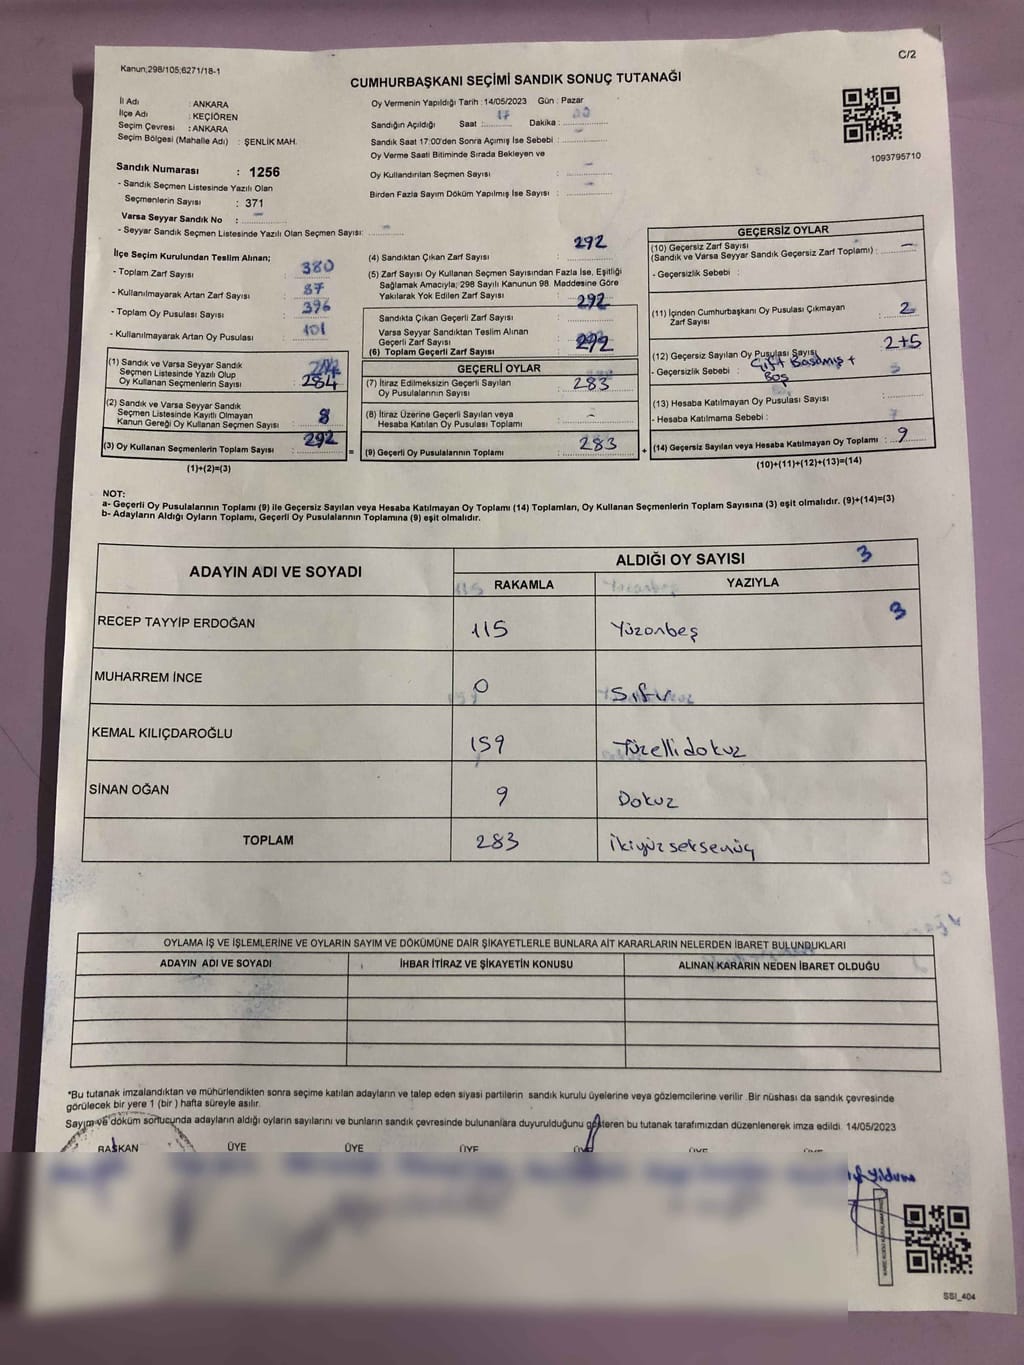 C/2
Kanun;298/105;6271/18-1
CUMHURBAŞKANI SEÇİMİ SANDIK SONUÇ TUTANAĞI
İl Adı : ANKARA
İlçe Adı : KEÇİÖREN
Seçim Çevresi : ANKARA
Seçim Bölgesi (Mahalle Adı) : ŞENLİK MAH.
Sandık Numarası : 1256
- Sandık Seçmen Listesinde Yazılı Olan
Seçmenlerin Sayısı : 371
Varsa Seyyar Sandık No : -
- Seyyar Sandık Seçmen Listesinde Yazılı Olan Seçmen Sayısı: -
Oy Vermenin Yapıldığı Tarih : 14/05/2023 Gün : Pazar
Sandığın Açıldığı Saat : 17 Dakika : 00
Sandık Saat 17:00'den Sonra Açımış İse Sebebi : -
Oy Verme Saati Bitiminde Sırada Bekleyen ve
Oy Kullandırılan Seçmen Sayısı : -
Birden Fazla Sayım Döküm Yapılmış İse Sayısı : -
1093795710
İlçe Seçim Kurulundan Teslim Alınan;
- Toplam Zarf Sayısı : 380
- Kullanılmayarak Artan Zarf Sayısı : 87
- Toplam Oy Pusulası Sayısı : 396
- Kullanılmayarak Artan Oy Pusulası : 101
(1) Sandık ve Varsa Seyyar Sandık
Seçmen Listesinde Yazılı Olup
Oy Kullanan Seçmenlerin Sayısı : 284
(2) Sandık ve Varsa Seyyar Sandık
Seçmen Listesinde Kayıtlı Olmayan
Kanun Gereği Oy Kullanan Seçmen Sayısı : 8
(3) Oy Kullanan Seçmenlerin Toplam Sayısı : 292
(1)+(2)=(3)
(4) Sandıktan Çıkan Zarf Sayısı : 292
(5) Zarf Sayısı Oy Kullanan Seçmen Sayısından Fazla İse, Eşitliği
Sağlamak Amacıyla; 298 Sayılı Kanunun 98. Maddesine Göre
Yakılarak Yok Edilen Zarf Sayısı :
Sandıkta Çıkan Geçerli Zarf Sayısı : 292
Varsa Seyyar Sandıktan Teslim Alınan
Geçerli Zarf Sayısı :
(6) Toplam Geçerli Zarf Sayısı : 292
GEÇERLİ OYLAR
(7) İtiraz Edilmeksizin Geçerli Sayılan
Oy Pusulasının Sayısı : 283
(8) İtiraz Üzerine Geçerli Sayılan veya
Hesaba Katılan Oy Pusulası Toplamı : -
(9) Geçerli Oy Pusulalarının Toplamı : 283
GEÇERSİZ OYLAR
(10) Geçersiz Zarf Sayısı
(Sandık ve Varsa Seyyar Sandık Geçersiz Zarf Toplamı) : -
- Geçersizlik Sebebi :
(11) İçinden Cumhurbaşkanı Oy Pusulası Çıkmayan
Zarf Sayısı : 2
(12) Geçersiz Sayılan Oy Pusulası Sayısı 2+5
- Geçersizlik Sebebi : Çift Basılmış +
Boş
(13) Hesaba Katılmayan Oy Pusulası Sayısı :
- Hesaba Katılmama Sebebi :
(14) Geçersiz Sayılan veya Hesaba Katılmayan Oy Toplamı : 9
(10)+(11)+(12)+(13)=(14)
NOT:
a- Geçerli Oy Pusulalarının Toplamı (9) ile Geçersiz Sayılan veya Hesaba Katılmayan Oy Toplamı (14) Toplamları, Oy Kullanan Seçmenlerin Toplam Sayısına (3) eşit olmalıdır. (9)+(14)=(3)
b- Adayların Aldığı Oyların Toplamı, Geçerli Oy Pusulalarının Toplamına (9) eşit olmalıdır.
ADAYIN ADI VE SOYADI ALDIĞI OY SAYISI 3
RAKAMLA YAZIYLA
3
RECEP TAYYİP ERDOĞAN 115 Yüzonbeş
MUHARREM İNCE 0 Sıfır
KEMAL KILIÇDAROĞLU 159 Yüzellidokuz
SİNAN OĞAN 9 Dokuz
TOPLAM 283 İkiyüz seksenüç
OYLAMA İŞ VE İŞLEMLERİNE VE OYLARIN SAYIM VE DÖKÜMÜNE DAİR ŞİKAYETLERLE BUNLARA AİT KARARLARIN NELERDEN İBARET BULUNDUKLARI
ADAYIN ADI VE SOYADI İHBAR İTİRAZ VE ŞİKAYETİN KONUSU ALINAN KARARIN NEDEN İBARET OLDUĞU
*Bu tutanak imzalandıktan ve mühürlendikten sonra seçime katılan adayların ve talep eden siyasi partilerin sandık kurulu üyelerine veya gözlemcilerine verilir. Bir nüshası da sandık çevresinde
görülecek bir yere 1 (bir ) hafta süreyle asılır.
Sayım ve döküm sonucunda adayların aldığı oyların sayılarını ve bunların sandık çevresinde bulunanlara duyurulduğunu gösteren bu tutanak tarafımızdan düzenlenerek imza edildi. 14/05/2023
BAŞKAN ÜYE ÜYE ÜYE ÜYE ÜYE ÜYE
SSI_404